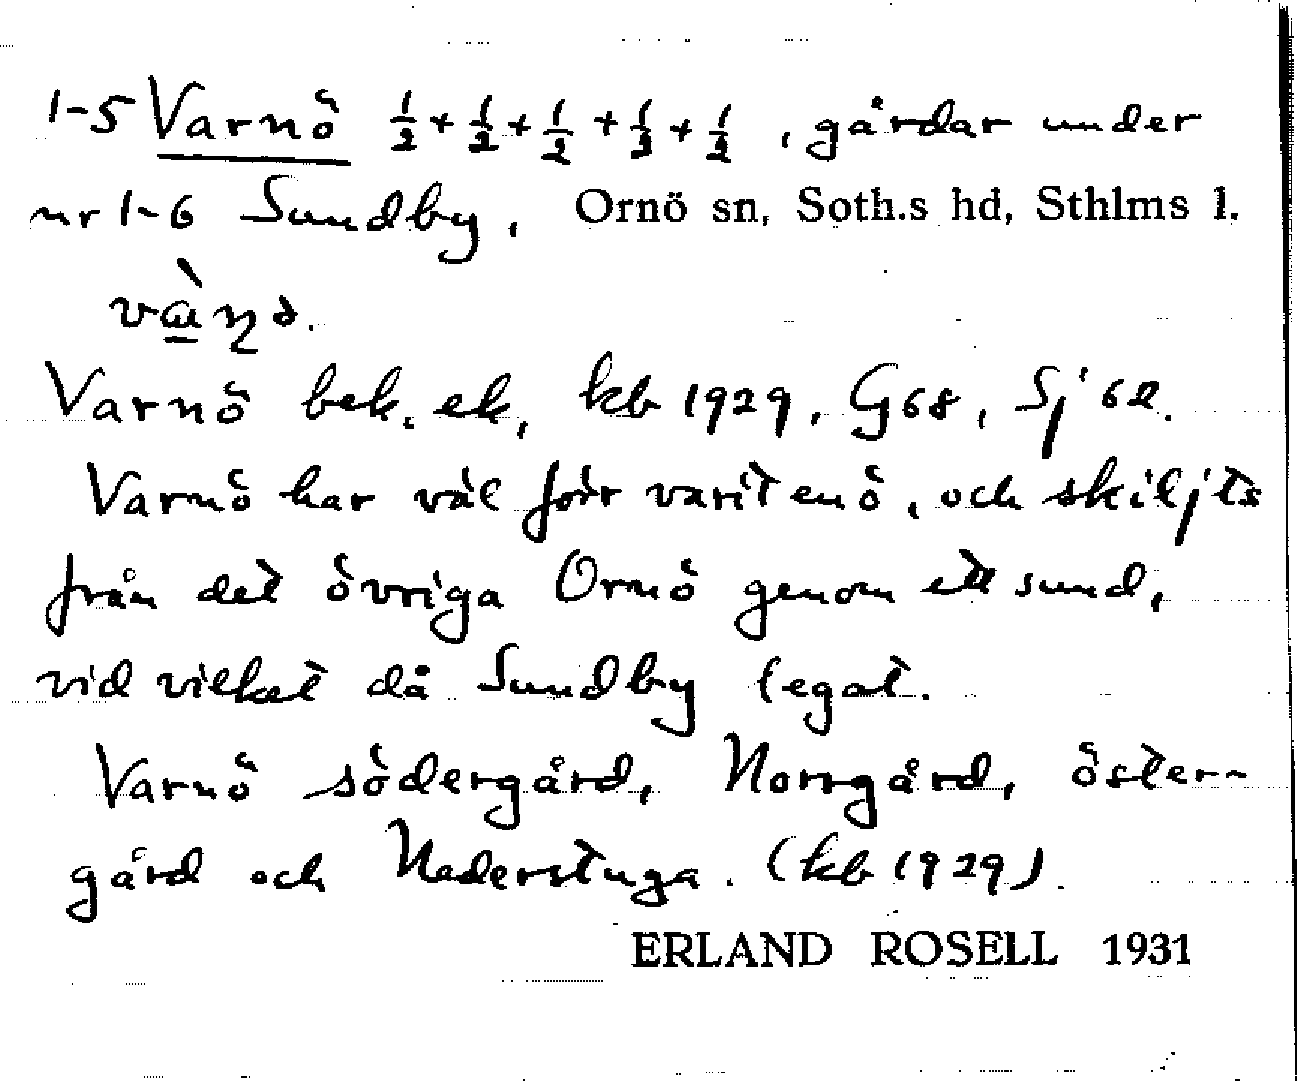 1-5 Varnö ½ + ½ + ½ + ½ + ½, gårdar under
nr 1-6 Sundby, Ornö sn, Soth.s hd, Sthlms l.
Varnö bek. ek, kb 1929, G68, Sj 62.
Varnö har väl förr varit en ö, och skiljts
från det övriga Ornö genom ett sund,
vid vilket då Sundby legat.
Varnö södergård, Norrgård, öster-
gård och Nederstuga. (kb 1929).
ERLAND ROSELL 1931